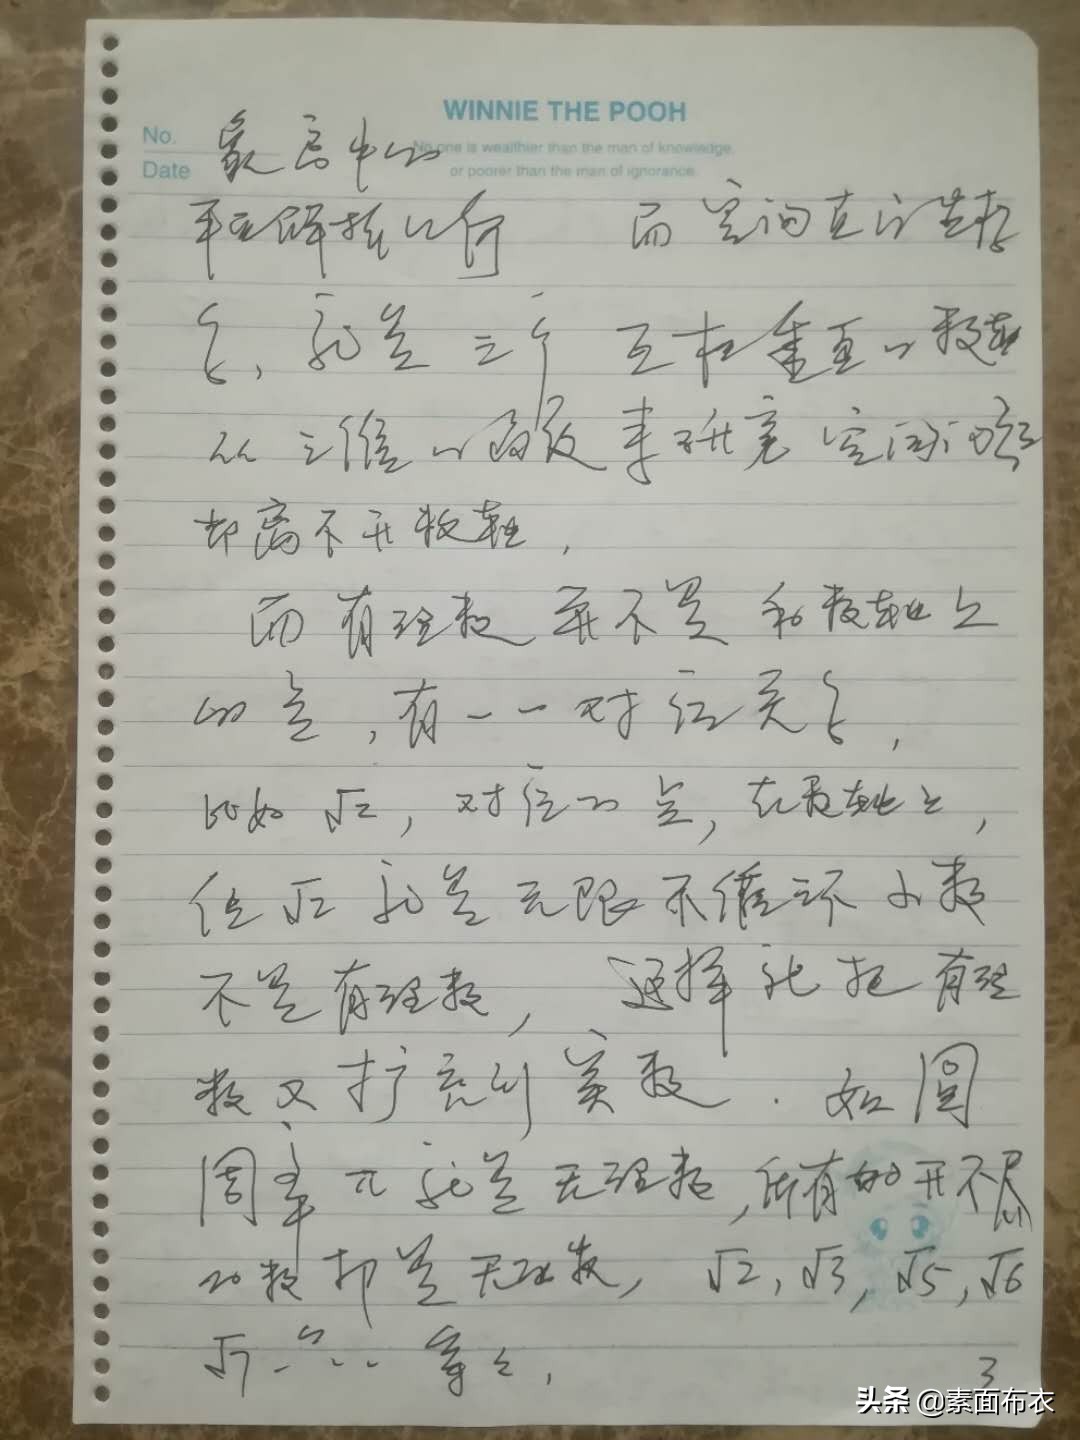 WINNIE THE POOH
No.
No one is wealthier than the man of knowledge,
Date
or poorer than the man of ignorance.
高中的
平面解析几何 而空间直角坐标
系,就是三个互相垂直的数轴
从三维的角度来研究空间
却离不开数轴,
而有理数并不是和数轴上
的点,有一一对应关系,
比如√2,对应的点,在数轴上,
但√2就是无限不循环小数
不是有理数, 这样就把有理
数又扩充到实数. 如圆
周率π就是无理数,所有的开不尽
的数都是无理数, √2,√3,√5,√6
√7 …… 等等,
3
头条 @素面布衣